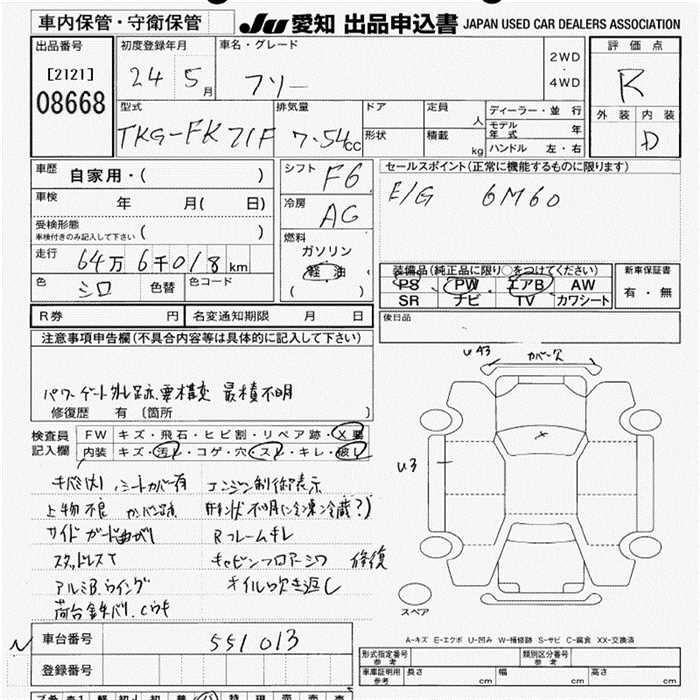 車内保管・守衛保管
JU 愛知 出品申込書 JAPAN USED CAR DEALERS ASSOCIATION
出品番号
[2121]
08668
初度登録年月
24 5月
車名・グレード
フソー
2WD
・
4WD
評価点
R
外装 内装
D
型式
TKG-FK71F
排気量
7.54cc
ドア
形状
定員
人
積載
kg
ディーラー・並行
モデル年式 年
ハンドル 左・右
車歴
自家用・( )
車検
年 月( 日)
受検形態
車検付きのみ記入して下さい ( )
走行
64万6千018km
色 シロ 色替 色コード
シフト F6
冷房 AC
燃料
ガソリン
軽油
( )
セールスポイント(正常に機能するものに限ります)
E/G 6M60
装備品(純正品に限り○をつけてください)
PS PW エアB AW
SR ナビ TV カワシート
新車保証書
有・無
後日品
R券 円 名変通知期限 月 日
注意事項申告欄(不具合内容等は具体的に記入して下さい)
パワーゲート外し跡
最積不明
修復歴 有 〔箇所 〕
検査員記入欄
FW キズ・飛石・ヒビ割・リペア跡・X要
内装 キズ・汚レ・コゲ・穴・スレ・キレ・破レ
シートカバー有 エンジン制御表示
上物不良 形状不明(冷凍冷蔵?)
サイドガード曲がり Rフレームキレ
スタッドレスT キャビンフロアーシワ 修復
アルミB.ウイング オイル吹き返し
U43 カバー欠
U3
スペア
A-キズ E-エクボ U-凹み W-補修跡 S-サビ C-腐食 XX-交換済
車台番号 551013
登録番号
形式指定番号 参考
類別区分番号 参考
車庫証明用 参考 長さ cm 幅 cm 高さ cm